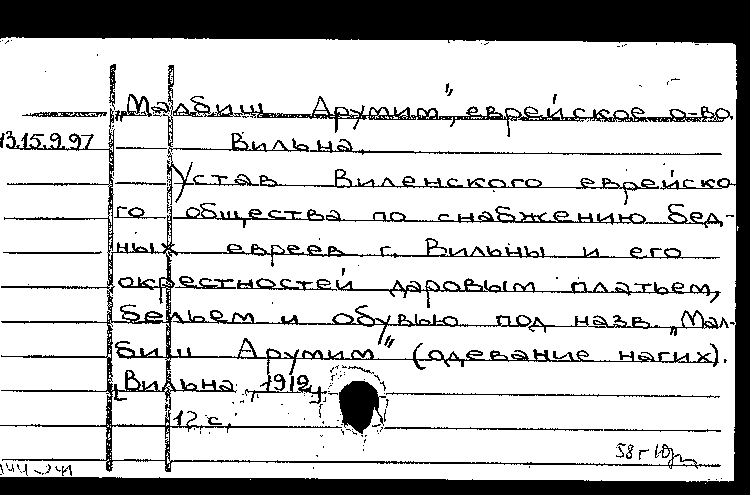 „Малбиш Арумим", еврейское о-во,
13.15.9.97 Вильна.
Устав Виленского еврейско
го общества по снабжению бед-
ных евреев г. Вильны и его
окрестностей даровым платьем,
бельем и обувью под назв. „Мал-
биш Арумим" (одевание нагих).
[Вильна, 1912]
12 с.
58 г